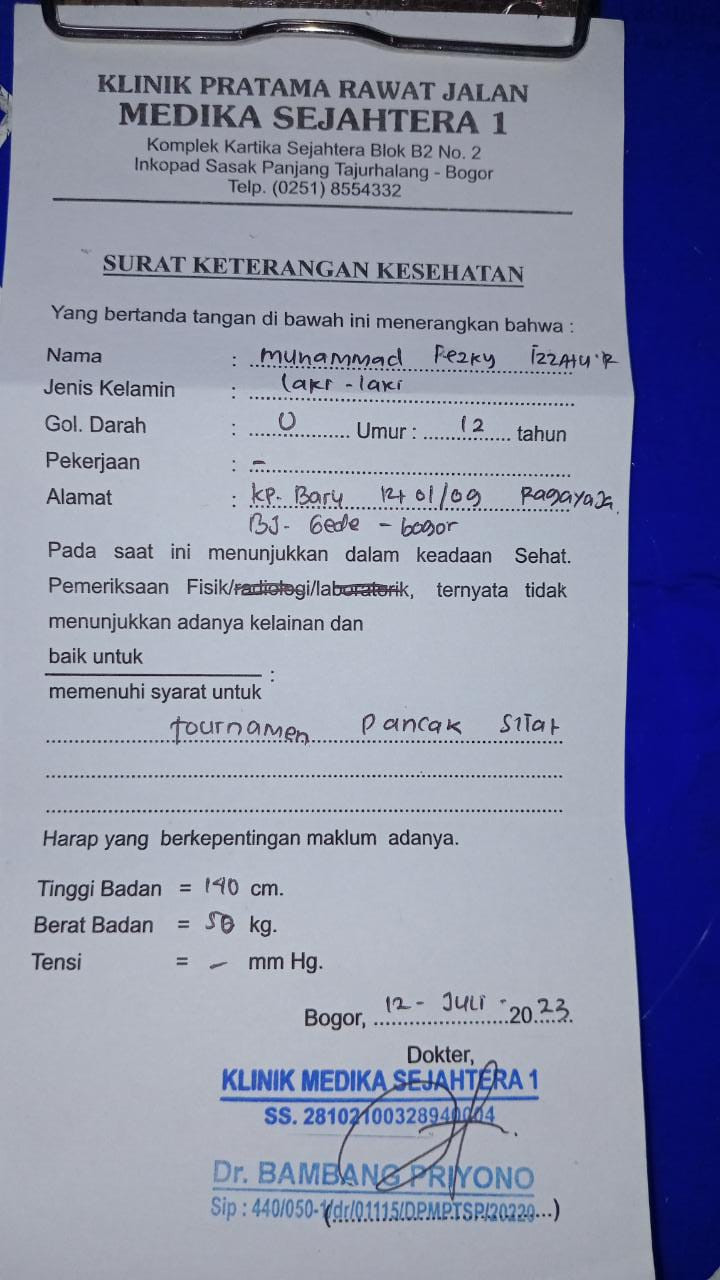 KLINIK PRATAMA RAWAT JALAN
MEDIKA SEJAHTERA 1
Komplek Kartika Sejahtera Blok B2 No. 2
Inkopad Sasak Panjang Tajurhalang - Bogor
Telp. (0251) 8554332
SURAT KETERANGAN KESEHATAN
Yang bertanda tangan di bawah ini menerangkan bahwa :
Nama : Muhammad Rezky Izzatu'R
Jenis Kelamin : laki-laki
Gol. Darah : O Umur : 12 tahun
Pekerjaan : -
Alamat : kp. Baru 01/09 Ragajaya
BJ- Gede - bogor
Pada saat ini menunjukkan dalam keadaan Sehat.
Pemeriksaan Fisik/radiologi/laboratorik, ternyata tidak
menunjukkan adanya kelainan dan
baik untuk
memenuhi syarat untuk :
tournamen Pancak Silat
Harap yang berkepentingan maklum adanya.
Tinggi Badan = 140 cm.
Berat Badan = 50 kg.
Tensi = - mm Hg.
Bogor, 12 - Juli - 2023
Dokter,
KLINIK MEDIKA SEJAHTERA 1
SS. 28102100328940004
Dr. BAMBANG PRIYONO
Sip : 440/050-1/dr/01115/DPMPTSP/20220...)